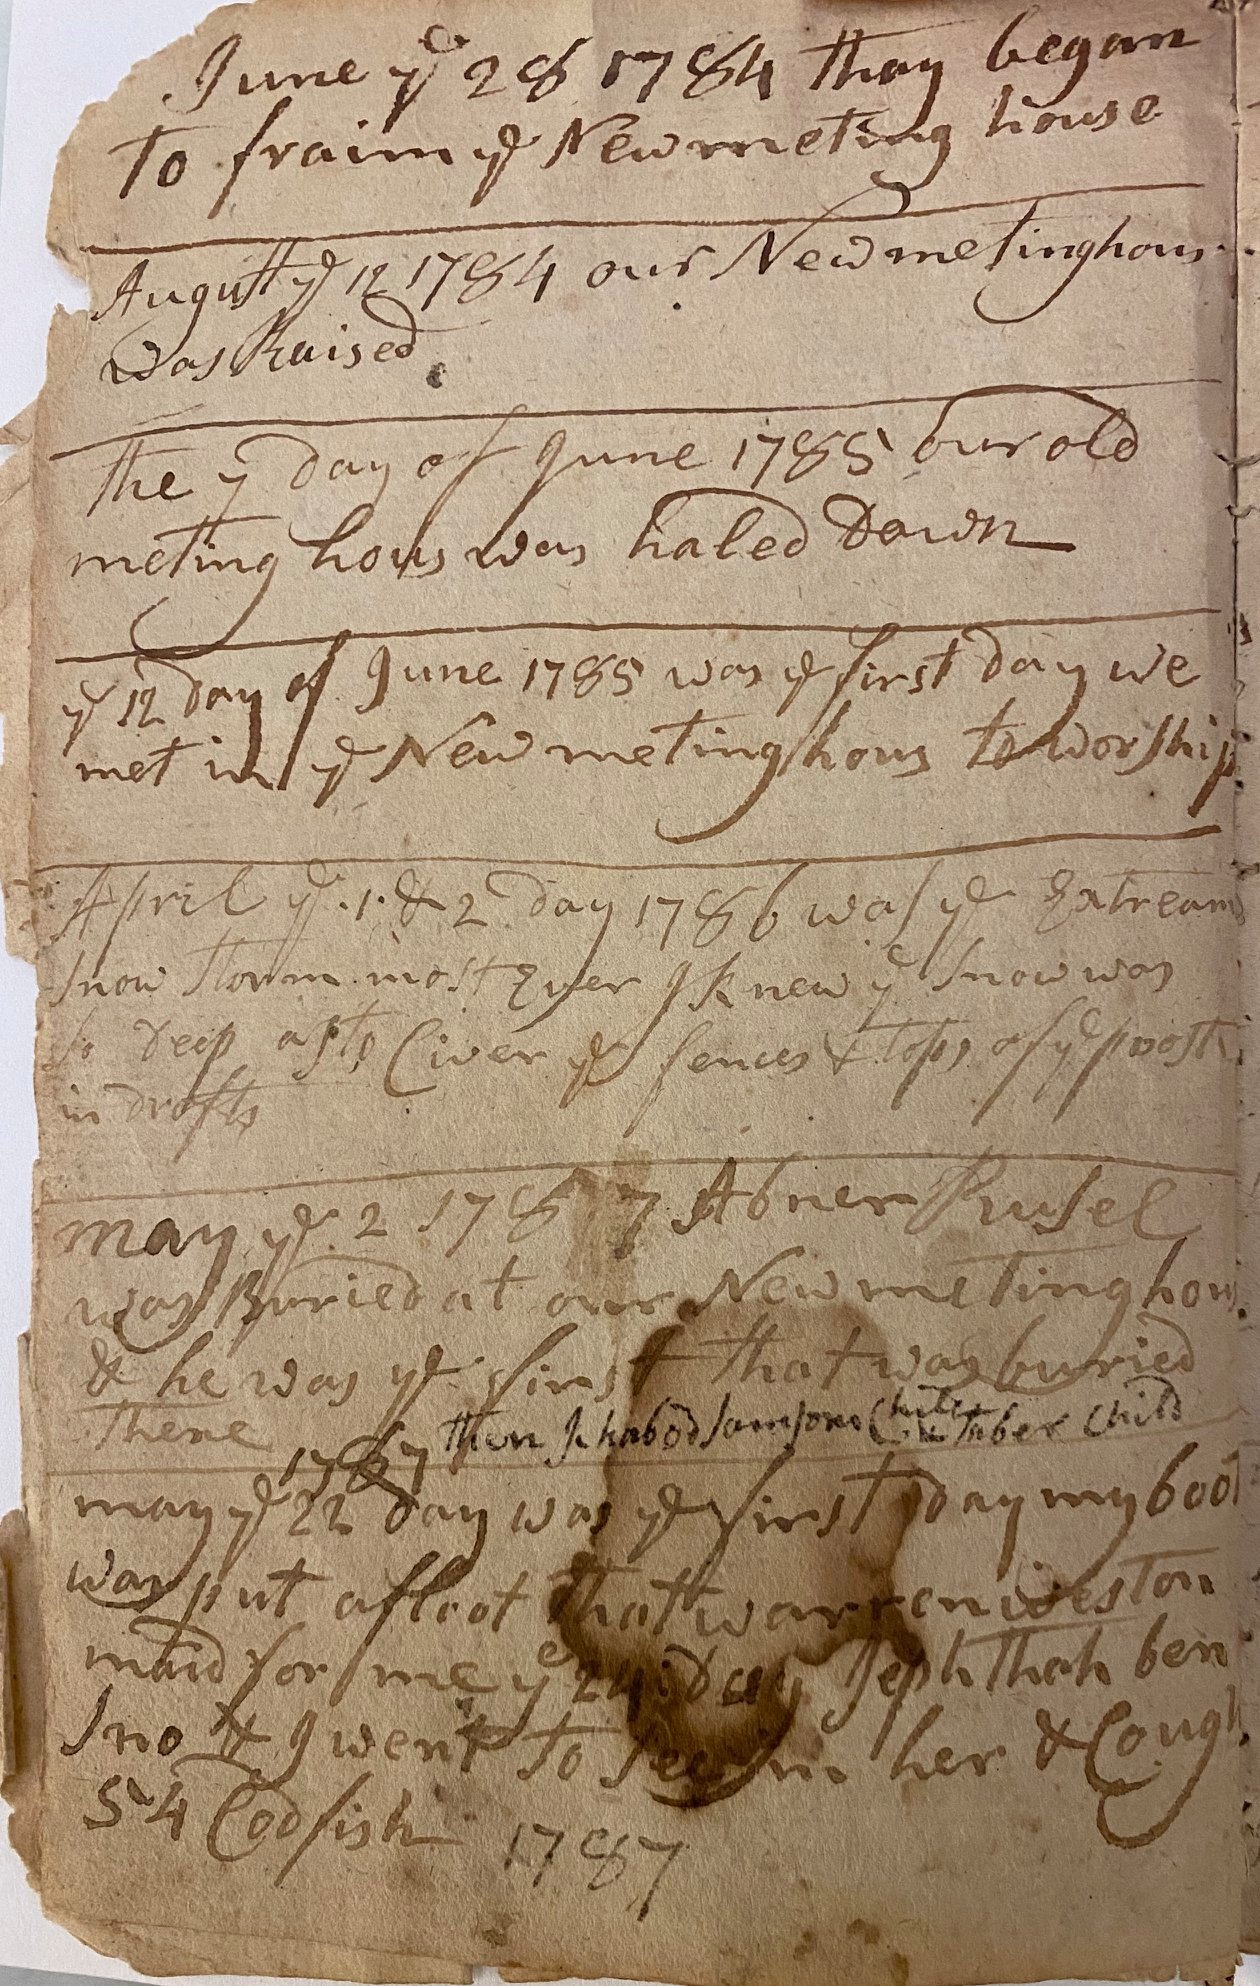 June ye 28 1784 thay began
to fraim ye New meting house
August ye 12 1784 our New metinghous
was Raised
the y day of June 1785 our old
meting hous was haled Down
ye 12 day of June 1785 was ye first day we
met in ye New meting hous to worship
April ye 1 & 2 day 1786 was ye Extream
snow storm most Ever I knew ye snow was
so deep as to Civer ye fences & tops of ye posts
in drofts
may ye 2 1787 Abner Rusel
was Buried at our New meting hous
& he was ye first that was buried
there then Ichabod Samsons Child Taber Child
1787
may ye 22 day was ye first day my boot
was put afloot that warren weston
maid for me ye 24 day Jephthah ben
Sno & I went to see in her & Cough
54 Codfish 1787